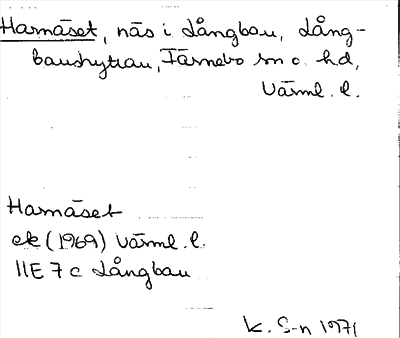 Harnäset, näs i Långban, Lång-
banshyttan, Färnebo sn o. hd,
Värml. l.
Harnäset
ek (1969) Värml. l.
11E 7c Långban
K. S-n 1971